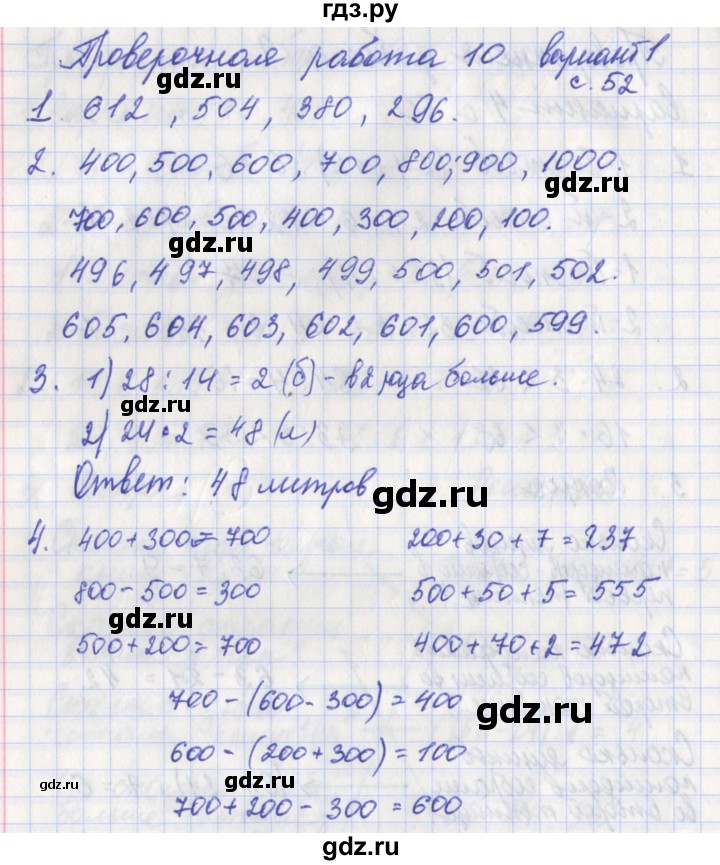 гдз.ру
Проверочная работа 10 вариант 1
gdz.ru
с. 52
1. 612, 504, 380, 296.
2. 400, 500, 600, 700, 800, 900, 1000.
gdz.ru
700, 600, 500, 400, 300, 200, 100.
gdz.ru
496, 497, 498, 499, 500, 501, 502.
605, 604, 603, 602, 601, 600, 599.
3. 1) 28 : 14 = 2 (б) - в 2 раза больше.
2) 24 · 2 = 48 (л)
Ответ: 48 литров
gdz.ru
4. 400 + 300 = 700 200 + 30 + 7 = 237
800 - 500 = 300 500 + 50 + 5 = 555
gdz.ru
500 + 200 = 700 400 + 70 + 2 = 472
700 - (600 - 300) = 400
gdz.ru
600 - (200 + 300) = 100
gdz.ru
gdz.ru
700 + 200 - 300 = 600